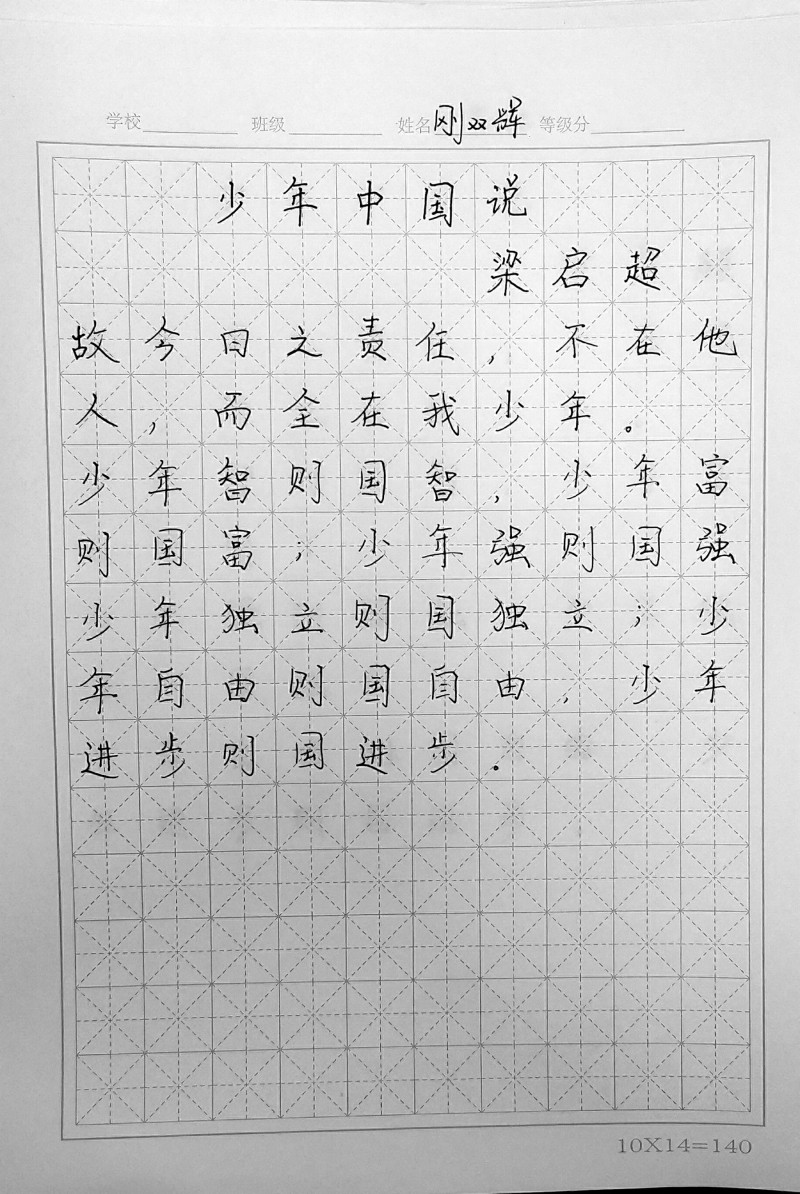 学校 班级 姓名刚双辉 等级分
少年中国说
梁启超
故今日之责任，不在他
人，而全在我少年。
少年智则国智，少年富
则国富；少年强则国强
少年独立则国独立；少
年自由则国自由，少年
进步则国进步。
10X14=140